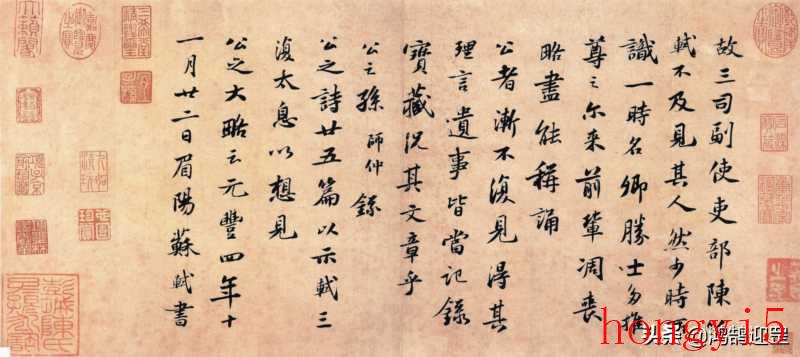 故三司副使吏部陳公
軾不及見其人然少時所
識一時名卿勝士多推
尊之尔来前輩凋喪
略盡能稱誦
公者漸不復見得其
理言遺事皆當記錄
寶藏況其文章乎
公之孫師仲錄
公之詩廿五篇以示軾三
復太息以想見
公之大略云元豐四年十
一月廿二日眉陽蘇軾書
hongyi5
头条@鸿鹄迎罡